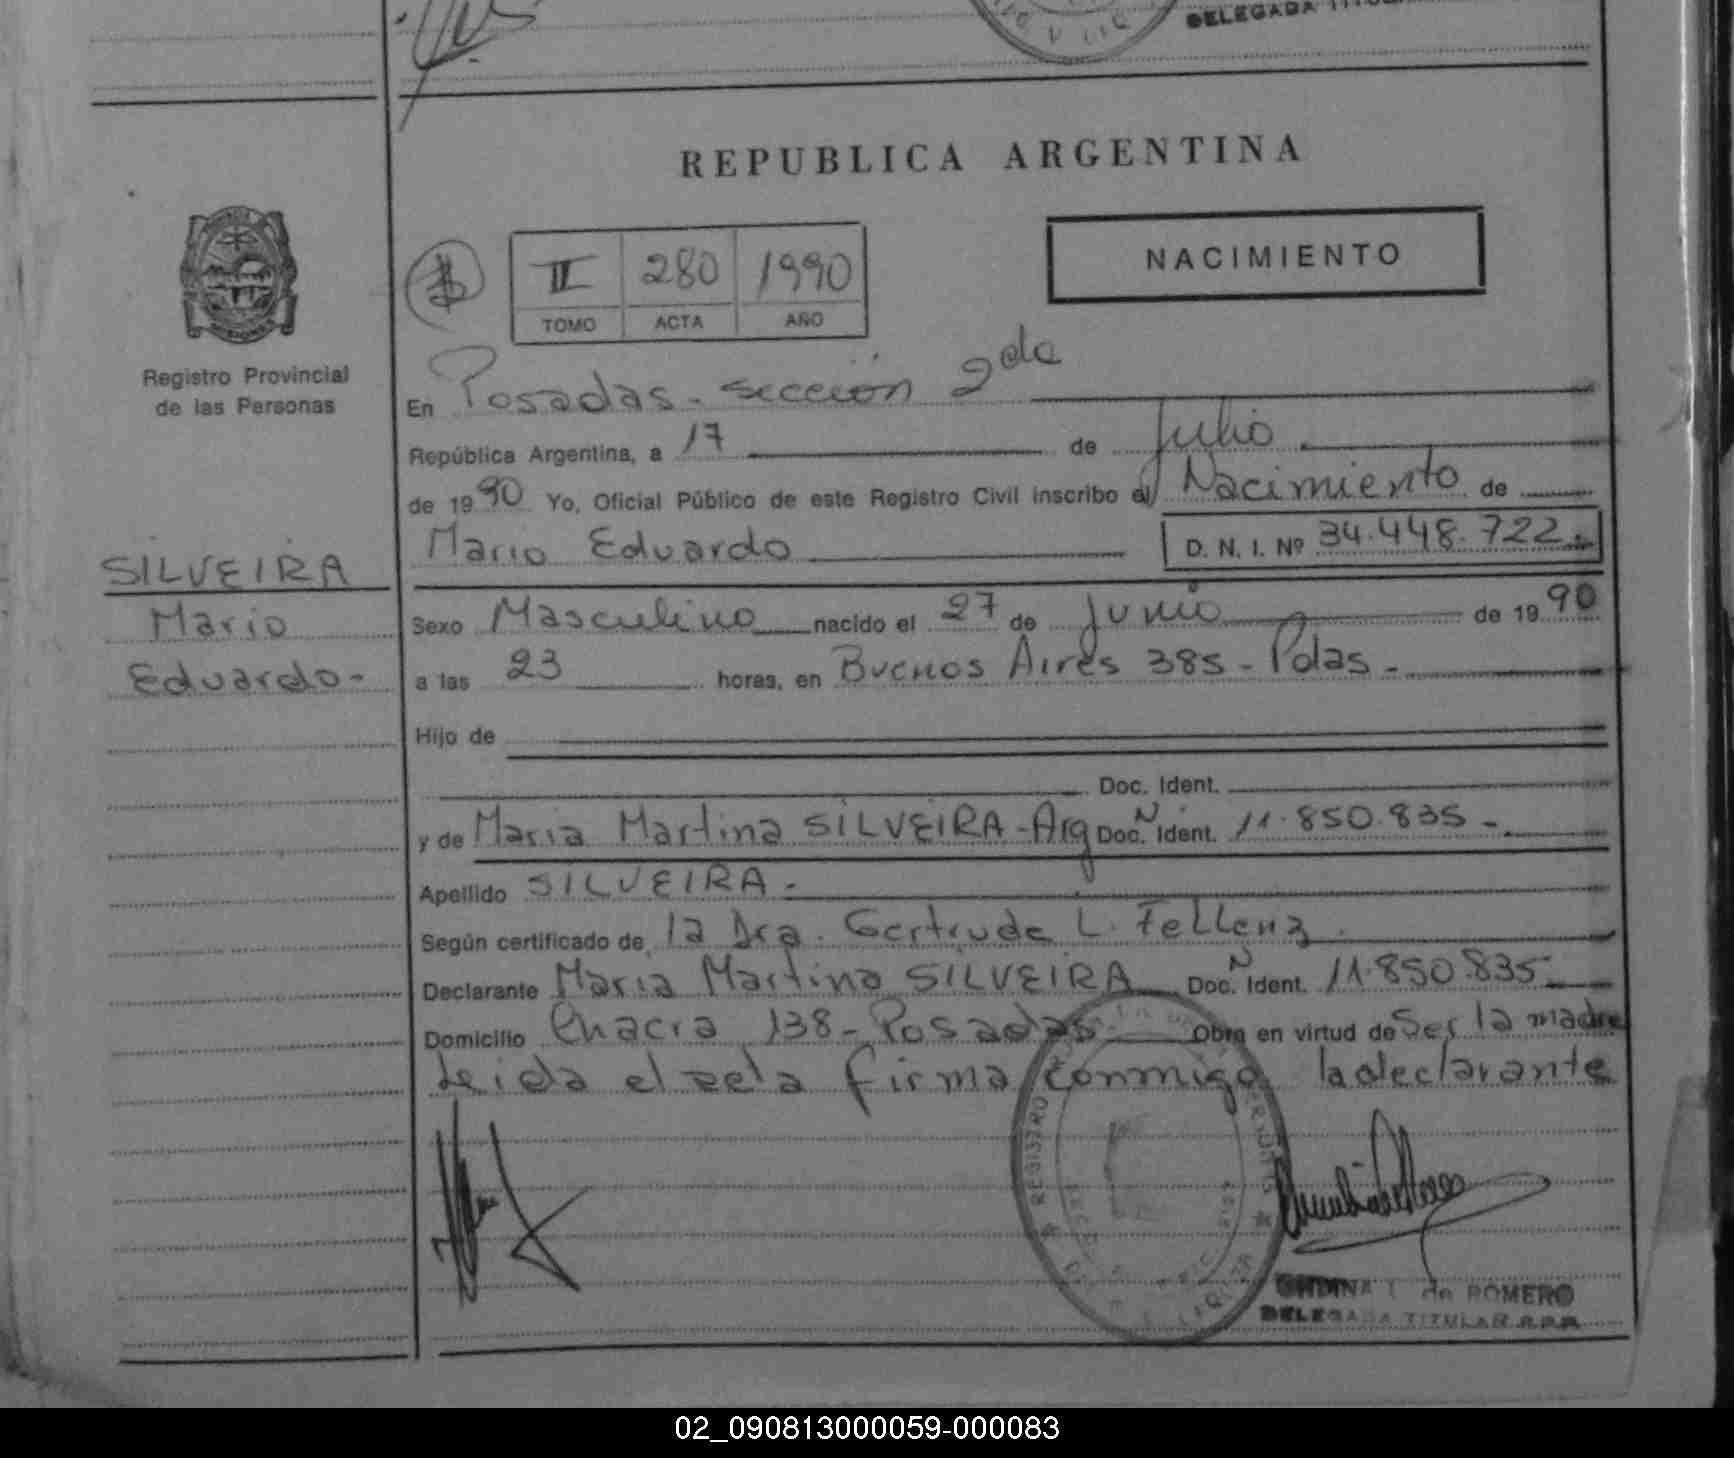 DELEGADA TITULAR
REPUBLICA ARGENTINA
NACIMIENTO
II 280 1990
TOMO ACTA AÑO
Registro Provincial
de las Personas
En Posadas - sección 2da
República Argentina, a 17 de Julio
de 1990 Yo, Oficial Público de este Registro Civil inscribo el Nacimiento de
Mario Eduardo D. N. I. Nº 34.448.722.
SILVEIRA
Mario
Eduardo -
Sexo Masculino nacido el 27 de Junio de 1990
a las 23 horas, en Buenos Aires 385 - Pdas -
Hijo de
Doc. Ident.
y de Maria Martina SILVEIRA - Arg Doc. N Ident. 11.850.835 -
Apellido SILVEIRA -
Según certificado de la Dra. Gertrude L. Fellenz
Declarante Maria Martina SILVEIRA Doc. N Ident. 11.850.835
Domicilio Chacra 138 - Posadas Obra en virtud de Ser la madre
Leida el acta firma conmigo la declarante
REGISTRO
de ROMERO
DELEGADA TITULAR R.P.P.
02_090813000059-000083